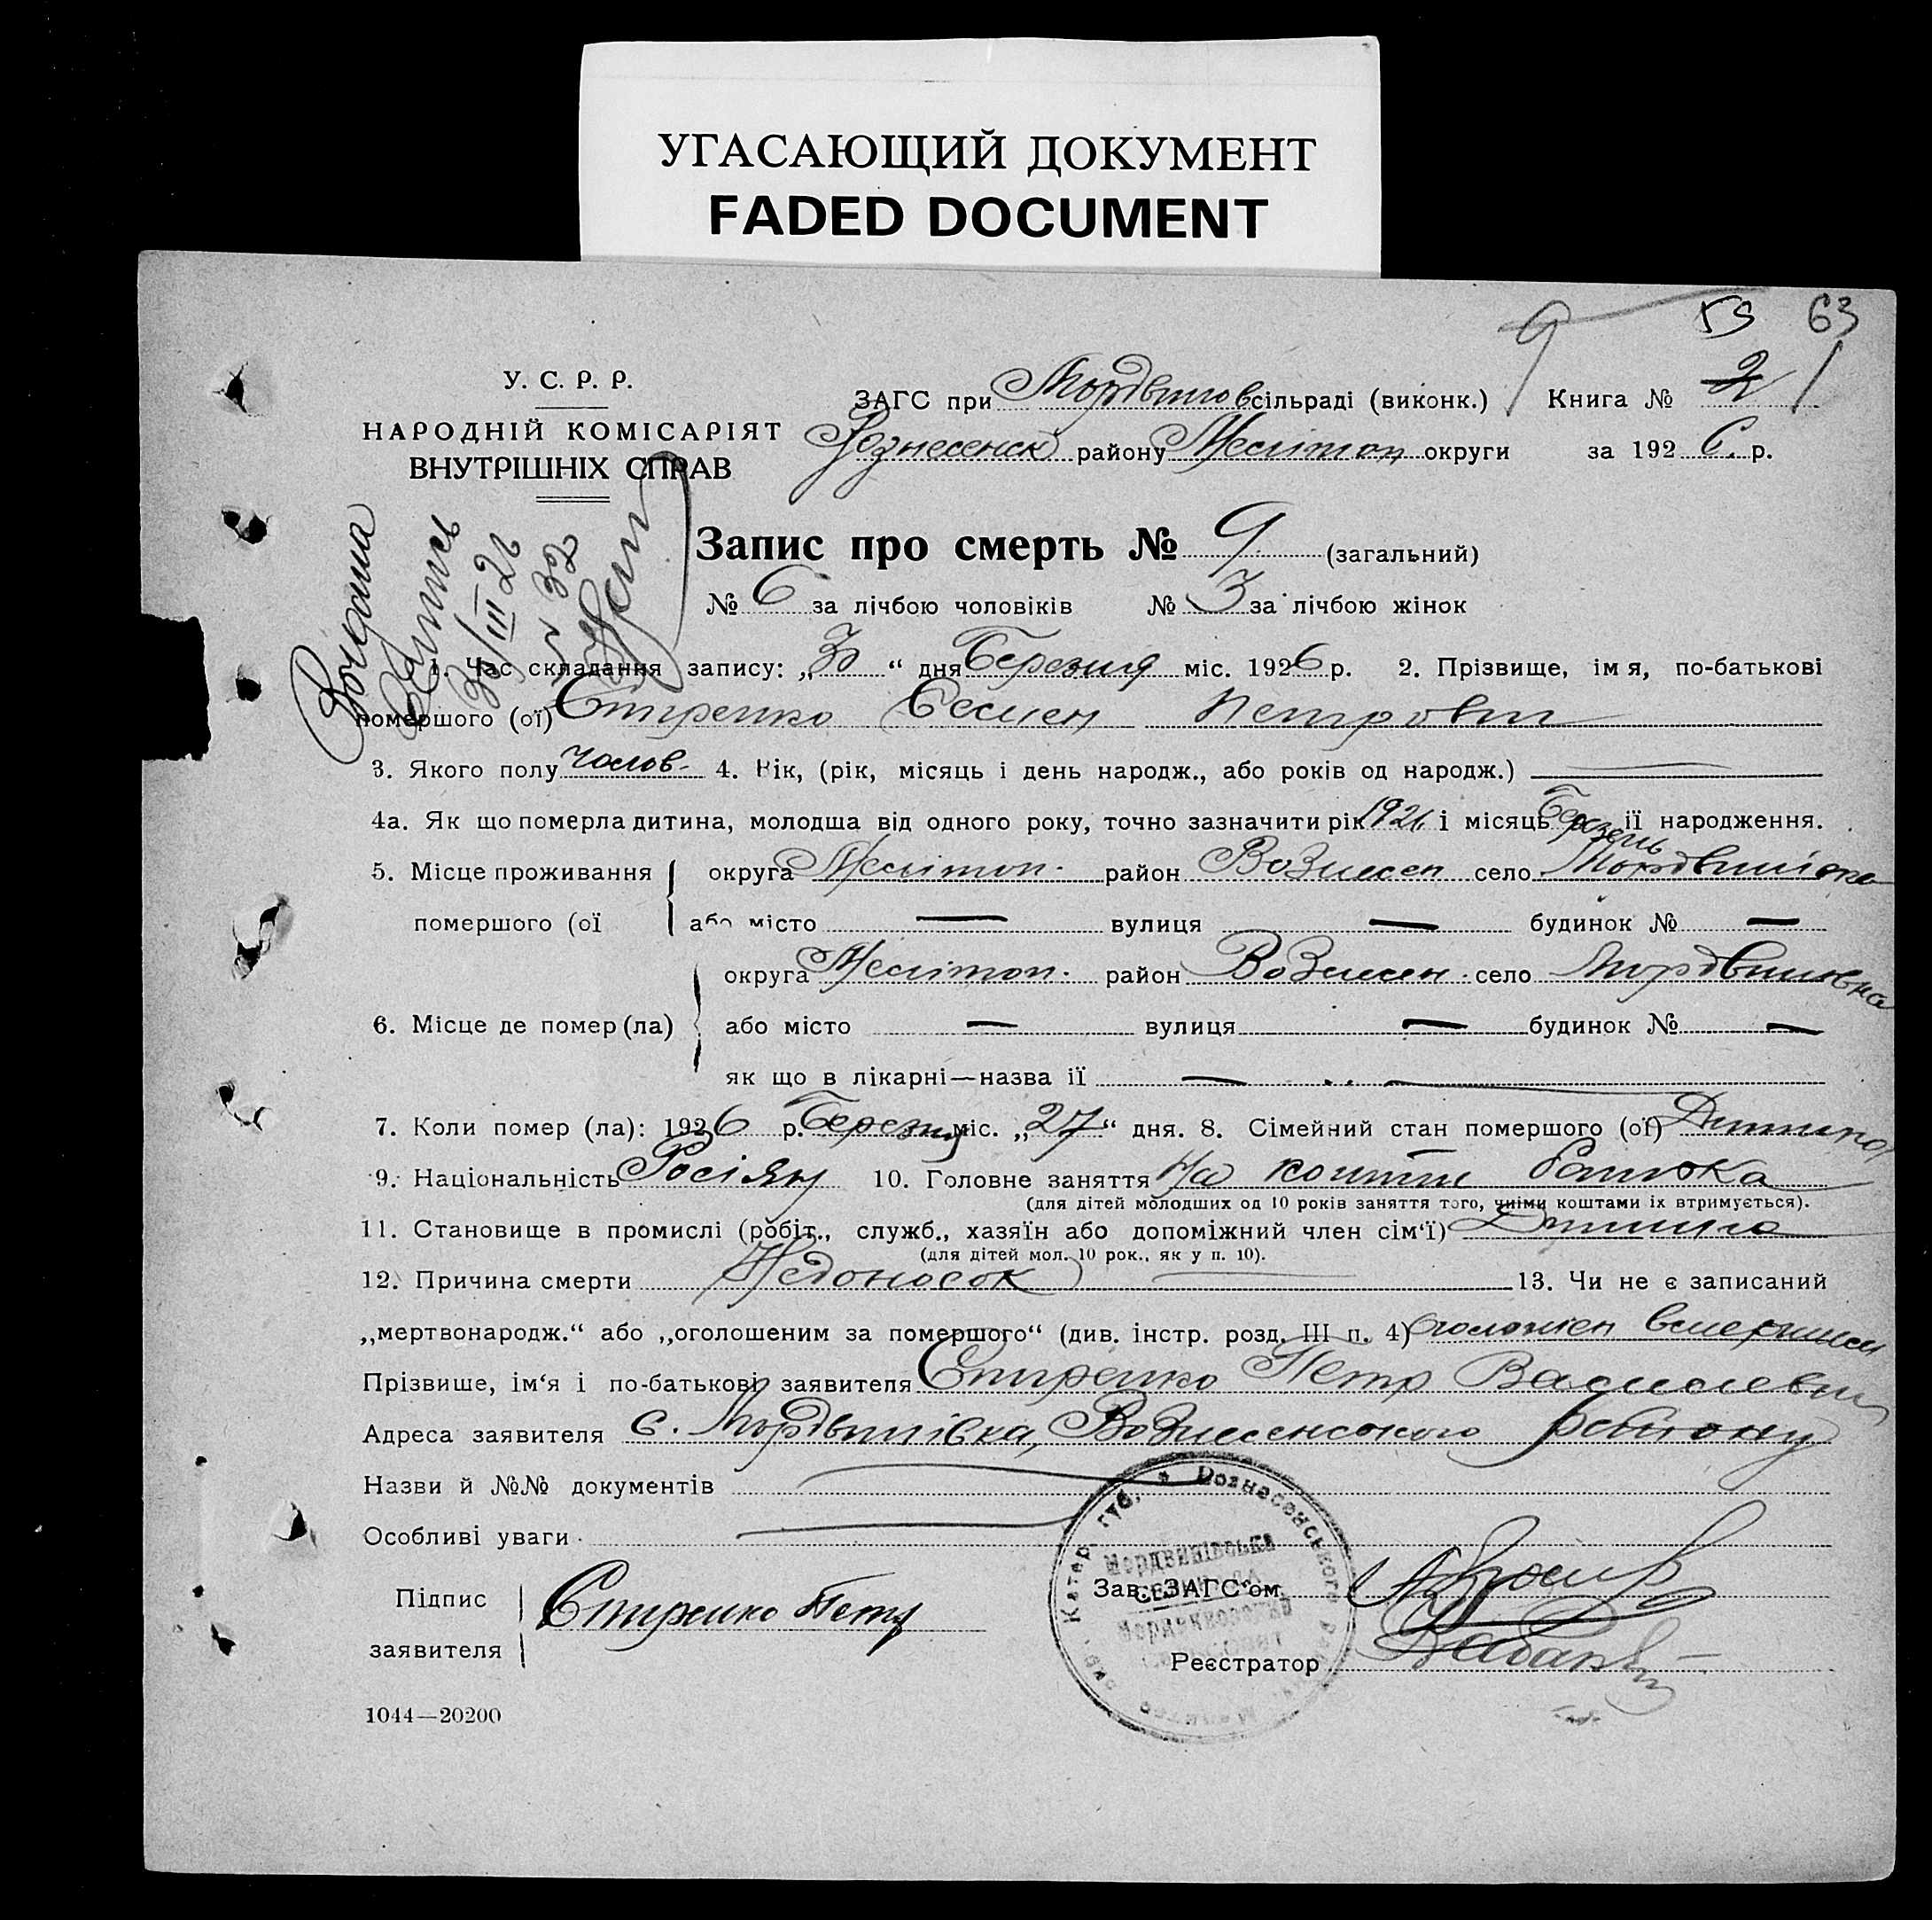 УГАСАЮЩИЙ ДОКУМЕНТ
FADED DOCUMENT
9 59 63
У. С. Р. Р.
НАРОДНІЙ КОМІСАРІЯТ
ВНУТРІШНІХ СПРАВ
ЗАГС при Мордвинов сільраді (виконк.) Книга № 2 1
Вознесенск району Меліт оп округи за 1926 р.
Запис про смерть № 9 (загальний)
№ 6 за лічбою чоловіків № 3 за лічбою жінок
Видана
Витись
30/III 26
№ 32
1. Час складання запису: „30“ дня Березня міс. 1926 р. 2. Прізвище, імя, по-батькові
помершого (ої) Спиренко Семен Петрович
3. Якого полу чолов. 4. Вік, (рік, місяць і день народж., або років од народж.)
4а. Як що померла дитина, молодша від одного року, точно зазначити рік 1926 і місяць Березень її народження.
5. Місце проживання округа Мелітоп. район Вознесен село Мордвинівка
помершого (ої або місто — вулиця — будинок № —
округа Мелітоп. район Вознесен. село Мордвиновка
6. Місце де помер (ла) або місто — вулиця — будинок № —
як що в лікарні—назва її —
7. Коли помер (ла): 1926 р. Березня міс. „27“ дня. 8. Сімейний стан помершого (ої) Дитина
9. Національність Росіян 10. Головне заняття На кошти батька
(для дітей молодших од 10 років заняття того, чиїми коштами їх втримується).
11. Становище в промислі (робіт., служб., хазяїн або допоміжний член сім'ї) Дитина
(для дітей мол. 10 рок., як у п. 10).
12. Причина смерти Недоносок 13. Чи не є записаний
„мертвонародж.“ або „оголошеним за помершого“ (див. інстр. розд. III п. 4)
Прізвище, ім'я і по-батькові заявителя Спиренко Петр Василевич
Адреса заявителя с. Мордвинівка, Вознесенського району
Назви й №№ документів
Особливі уваги
Підпис
заявителя
Спиренко Петр
Зав. ЗАГС'ом
Реєстратор
Катер. губ. * Вознесенського
Мордвинівська
1044—20200